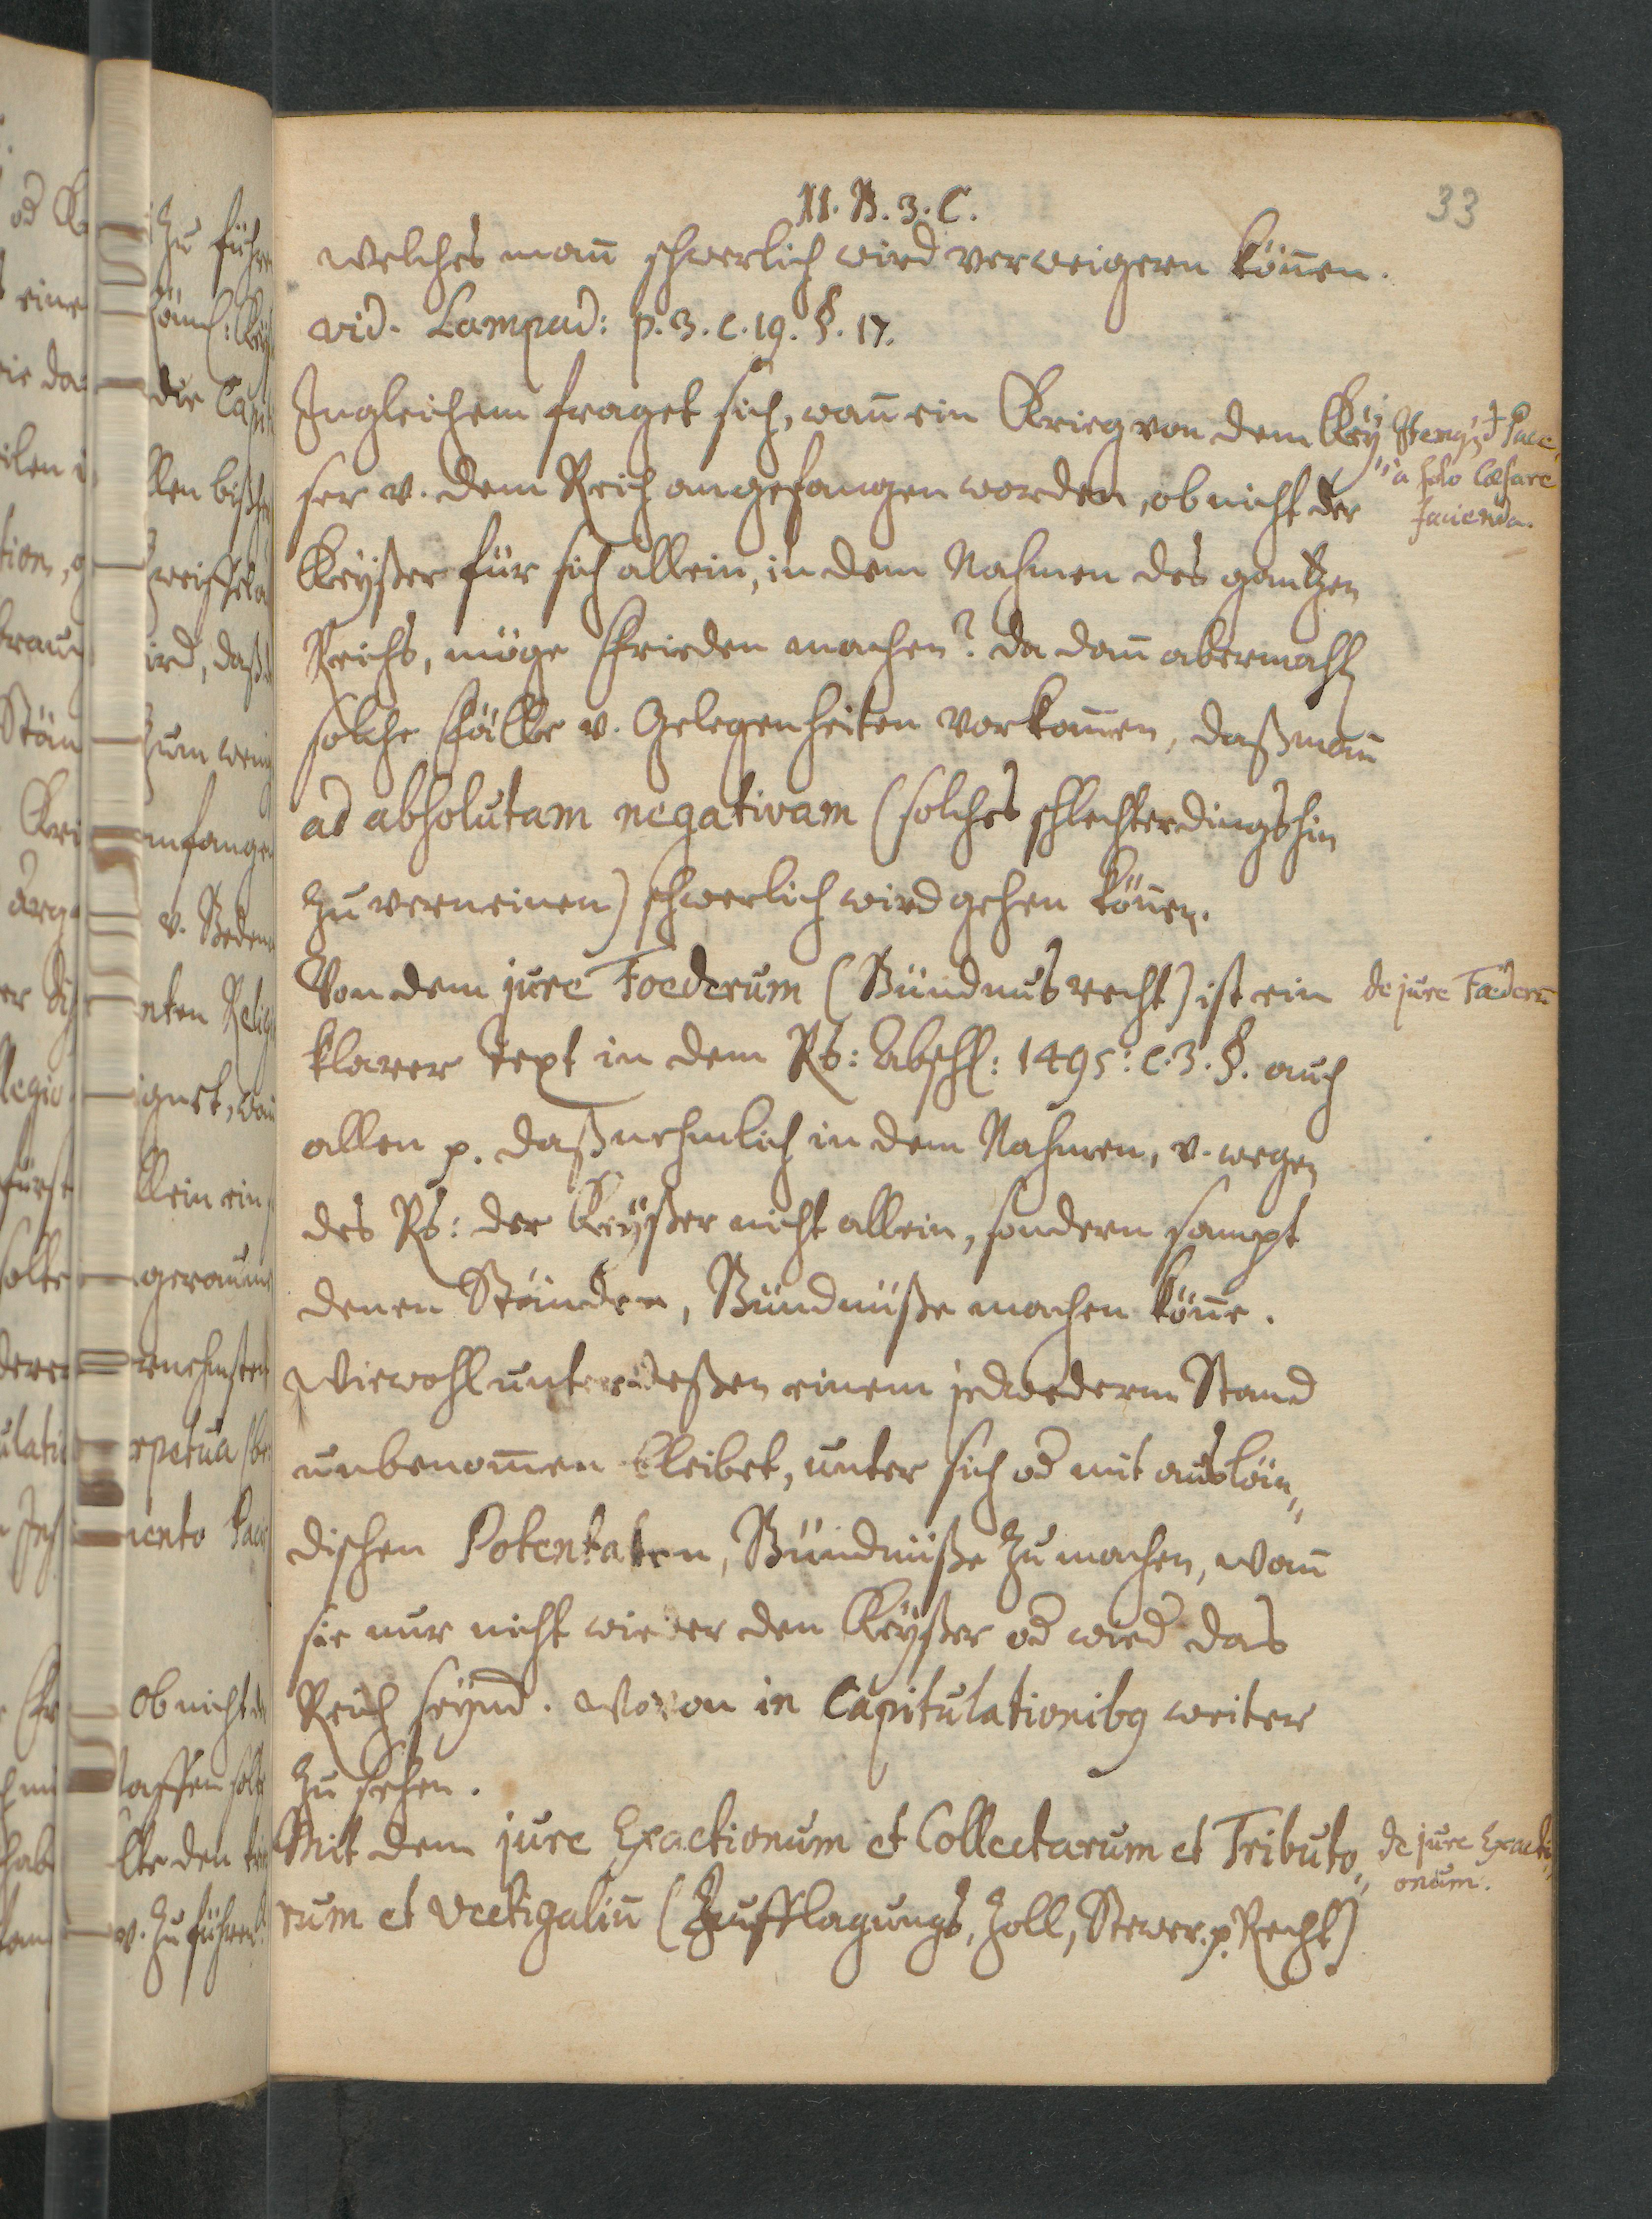 II. B. 3. C.
33
welches mañ schwerlich wird verweigern köñen.
vid. Lampad: p. 3. c. 19. §. 17.
Ingleichem fraget sich, wañ ein Krieg von dem Keÿ
ser v. dem Reich angefangen worden, ob nicht der
à solo Cæsare
facienda.
Keÿßer für sich allein, in dem Nahmen des gantzen
Reichs, möge Frieden machen? da dañ abermahls
solche Fälle v. Gelegenheiten vorkom̃en, daß mañ
ad absolutam negativam (solches schlechterdingshin
zu verneinen) schwerlich wird gehen köñen.
Von dem jure Foederum (Bündnus recht) ist ein
de jure Fæderũ
klarer text in dem Rs: Absch: 1495: c. 3. §. auch
allen p. daß nehmlich in dem Nahmen, v. wegen
des Rs: der Keÿßer nicht allein, sondern sampt
denen Ständen, Bündnüße machen köñe.
Wiewohl unterdeßen einem jedwederm Stand
unbenom̃en bleibet, unter sich od mit auslän„
dischen Potentaten, Bündnüße zu machen, wañ
sie nur nicht wieder den Keÿßer od wied das
Reich seÿnd. Wovon in Capitulationibq weiter
zu sehen.
Mit dem jure Exactionum et Collectarum et Tributo„
de jure Exacti„
onum.
rum et Vectigaliũ (Aufflagungs, Zoll, Stewer p. Recht)